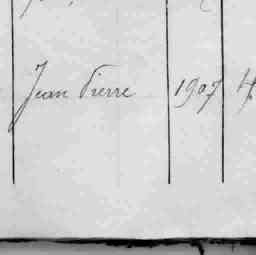 Jean Pierre 1907